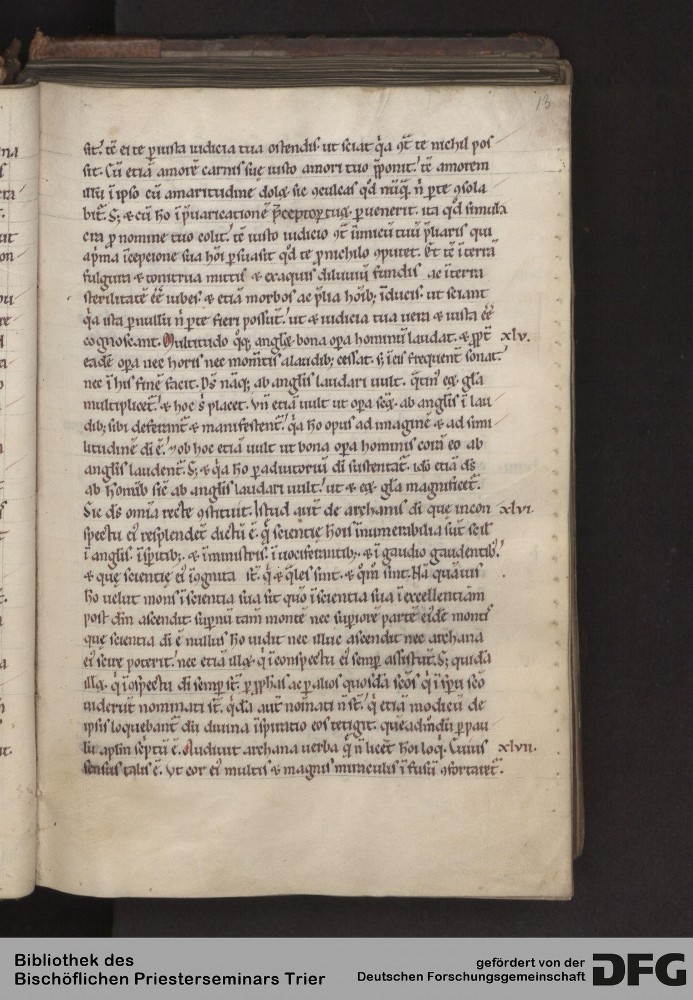 13
sit. tc̄ ei te p iusta iudicia tua ostendis. ut sciat q̇a ꝯt̄ te nichil pos
sit. Cū etiā amorē carnis suę iusto amori tuo p̄ponit. tc̄ amorem
illū ī ipso cū amaritudine doloꝝ sic ꝯculcas qd̄ nūq̄ n̄ p te ꝯsola
bit̄. S; & cū hō ī p̄uaricationē p̄ceptoꝝ tuoꝝ puenerit. ita qd̄ simula
cra p nomine tuo colit. tc̄ iusto iudicio ꝯt̄ inimicū tuū p̄liaris qui
fulgura & tonitrua mittis & ex aquis diluuiū fundis ac ī terra
sterilitatē eē iubes. & etiā morbos ac p̄lia hōib; īducis. ut sciant
q̇a ista p nullū n̄ p te fieri possūt. ut & iudicia tua uera & iusta eē
cognoscant. Multitudo qq; angloꝝ bona opa hominū laudat. & ꝓpt̄ xlv.
eadē opa nec horis nec momtis a laudib; cessat. s; ī eis frequent̄ sonat.
nec ī his finē facit. Ds̄ nāq; ab anglis laudari uult. q̄tin' eoꝝ gl̄a
multiplicet̄. & hoc s' placet. Vn̄ etiā uult ut opa scoꝝ ab anglis ī lau
dib; sibi deferant̄ & manifestent̄. q̇a hō opus ad imaginē & ad simi
litudinē dī ē. & ob hoc etiā uult ut bona opa hominis corā eo ab
anglis laudent̄. S; & q̇a hō p adiutoriū dī sustentat̄. idō etiā ds̄
ab homīb sic̄ ab anglis laudari uult. ut & eoꝝ gl̄a magnificet̄.
Sic ds̄ omīa recte ꝯstituit. Istud aut̄ de archanis dī que in con xlvi.
spectu ei' resplendet̄ dictū ē. q̇ scientię hōis innumerabilia sūt scil
ī anglis. ī spitib;. & ī ministris. ī uociferantib;. & ī gaudio gaudentib;.
& quę scientię ei' īgnita st̄. q̇ & q̄les sint. & q̇m sint. Nā quāuis
hō uelut mons ī scientia sua sit quo ī scientia sua ī excellentiam
post dn̄m ascendit. supnū tam̄ montē nec supiorē partē eidē montis
quę scientia dī ē nullus hō uidit nec illuc ascendit nec archana
ei' scire poterit. nec etiā illoꝝ q̇ ī conspectu ei' semp assistūt. S; quidā
illoꝝ q̇ ī ꝯspectu dī semp st̄. p pphas ac p alios quosdā scōs q̇ ī spū scō
uiderūt nominati st̄. q̇dā aut̄ nōīati n̄ st̄. q̇ etiā modicū de
ipsis loquebant̄ dū diuina īspiratio eos tetigit. queadmdū p pau
lū apl̄m sc̄ptū ē. Audiuit archana uerba q̇ n̄ licet̄ hōi loq̇. Cuius xlvii.
sensus talis ē. Vt cor ei' multis & magnis miraculis ī fusū ꝯfortaret̄.
Bibliothek des
Bischöflichen Priesterseminars Trier
gefördert von der
Deutschen Forschungsgemeinschaft
DFG